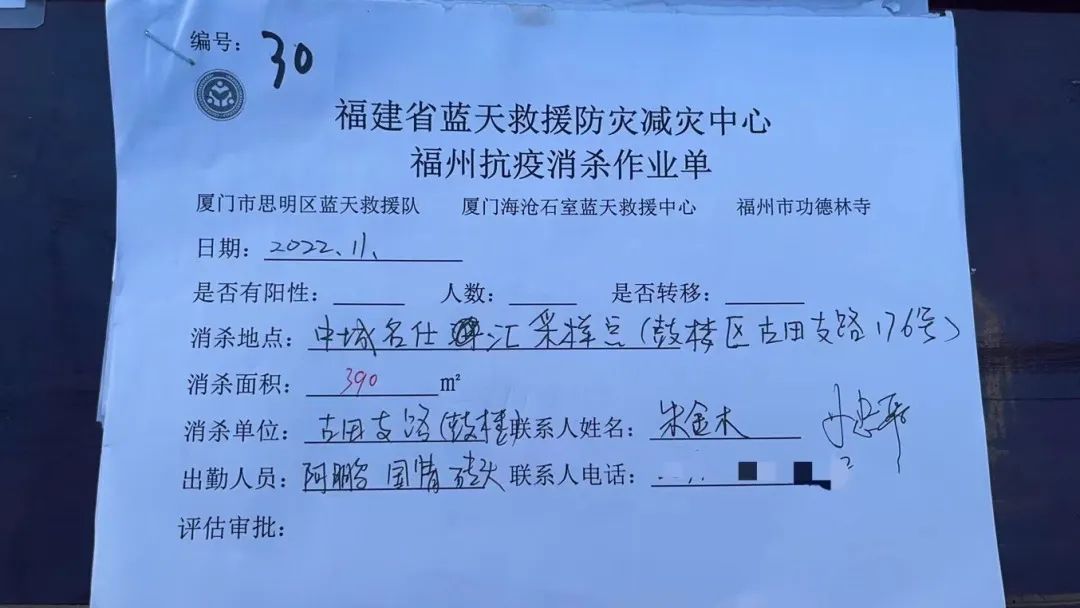 编号：30
福建省蓝天救援防灾减灾中心
福州抗疫消杀作业单
厦门市思明区蓝天救援队 厦门海沧石室蓝天救援中心 福州市功德林寺
日期：2022、11、
是否有阳性： 人数： 是否转移：
消杀地点：中城名仕汇采样点（鼓楼区古田支路176号）
消杀面积：390 m²
消杀单位：古田支路（鼓楼） 联系人姓名：朱金木
出勤人员：阿鹏 国清 联系人电话：
评估审批：